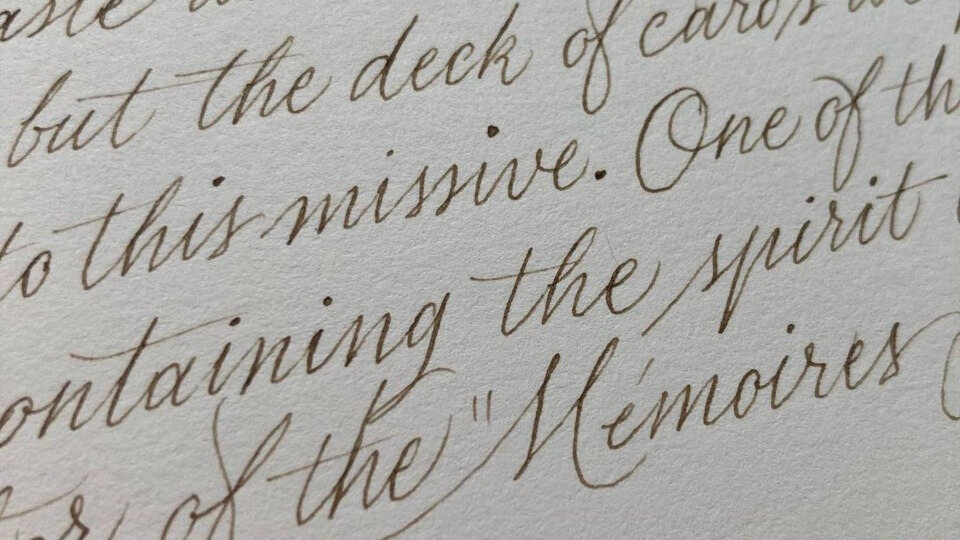 but the deck of cards
to this missive. One of
containing the spirit
of the "Mémoires